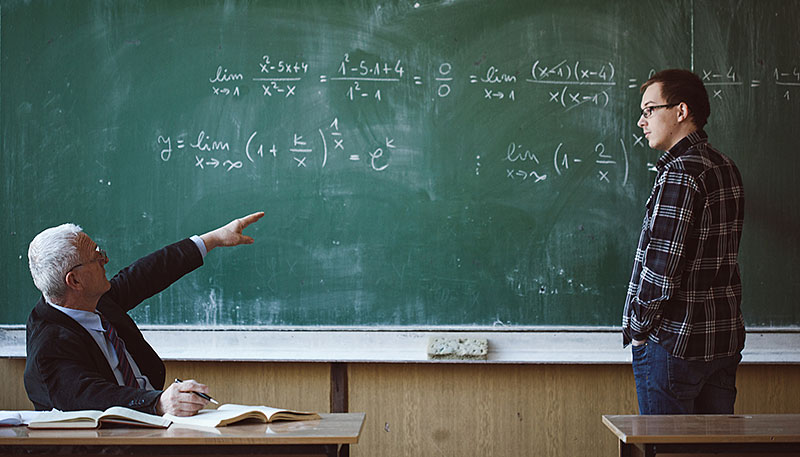 lim x→1 (x²-5x+4)/(x²-x) = (1²-5·1+4)/(1²-1) = 0/0 = lim x→1 ((x-1)(x-4))/(x(x-1)) = (x-4)/x = (1-4)/1
y = lim x→∞ (1 + k/x)^(1/x) = e^k : lim x→∞ (1 - 2/x)^x